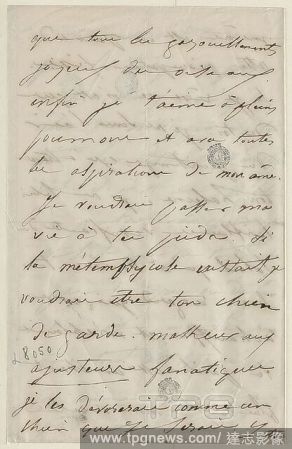 que tous les gazouillements
joyeux des oiseaux
enfin je t'aime à pleins
poumons et avec toutes
les aspirations de mon âme.
Je voudrais passer ma
vie à tes pieds. Si
la métempsycose existait je
voudrais être ton chien
de garde. malheur aux
ajusteurs fanatiques
je les dévorerais comme un
chien que je serais
£8050
www.tpgnews.com 達志影像